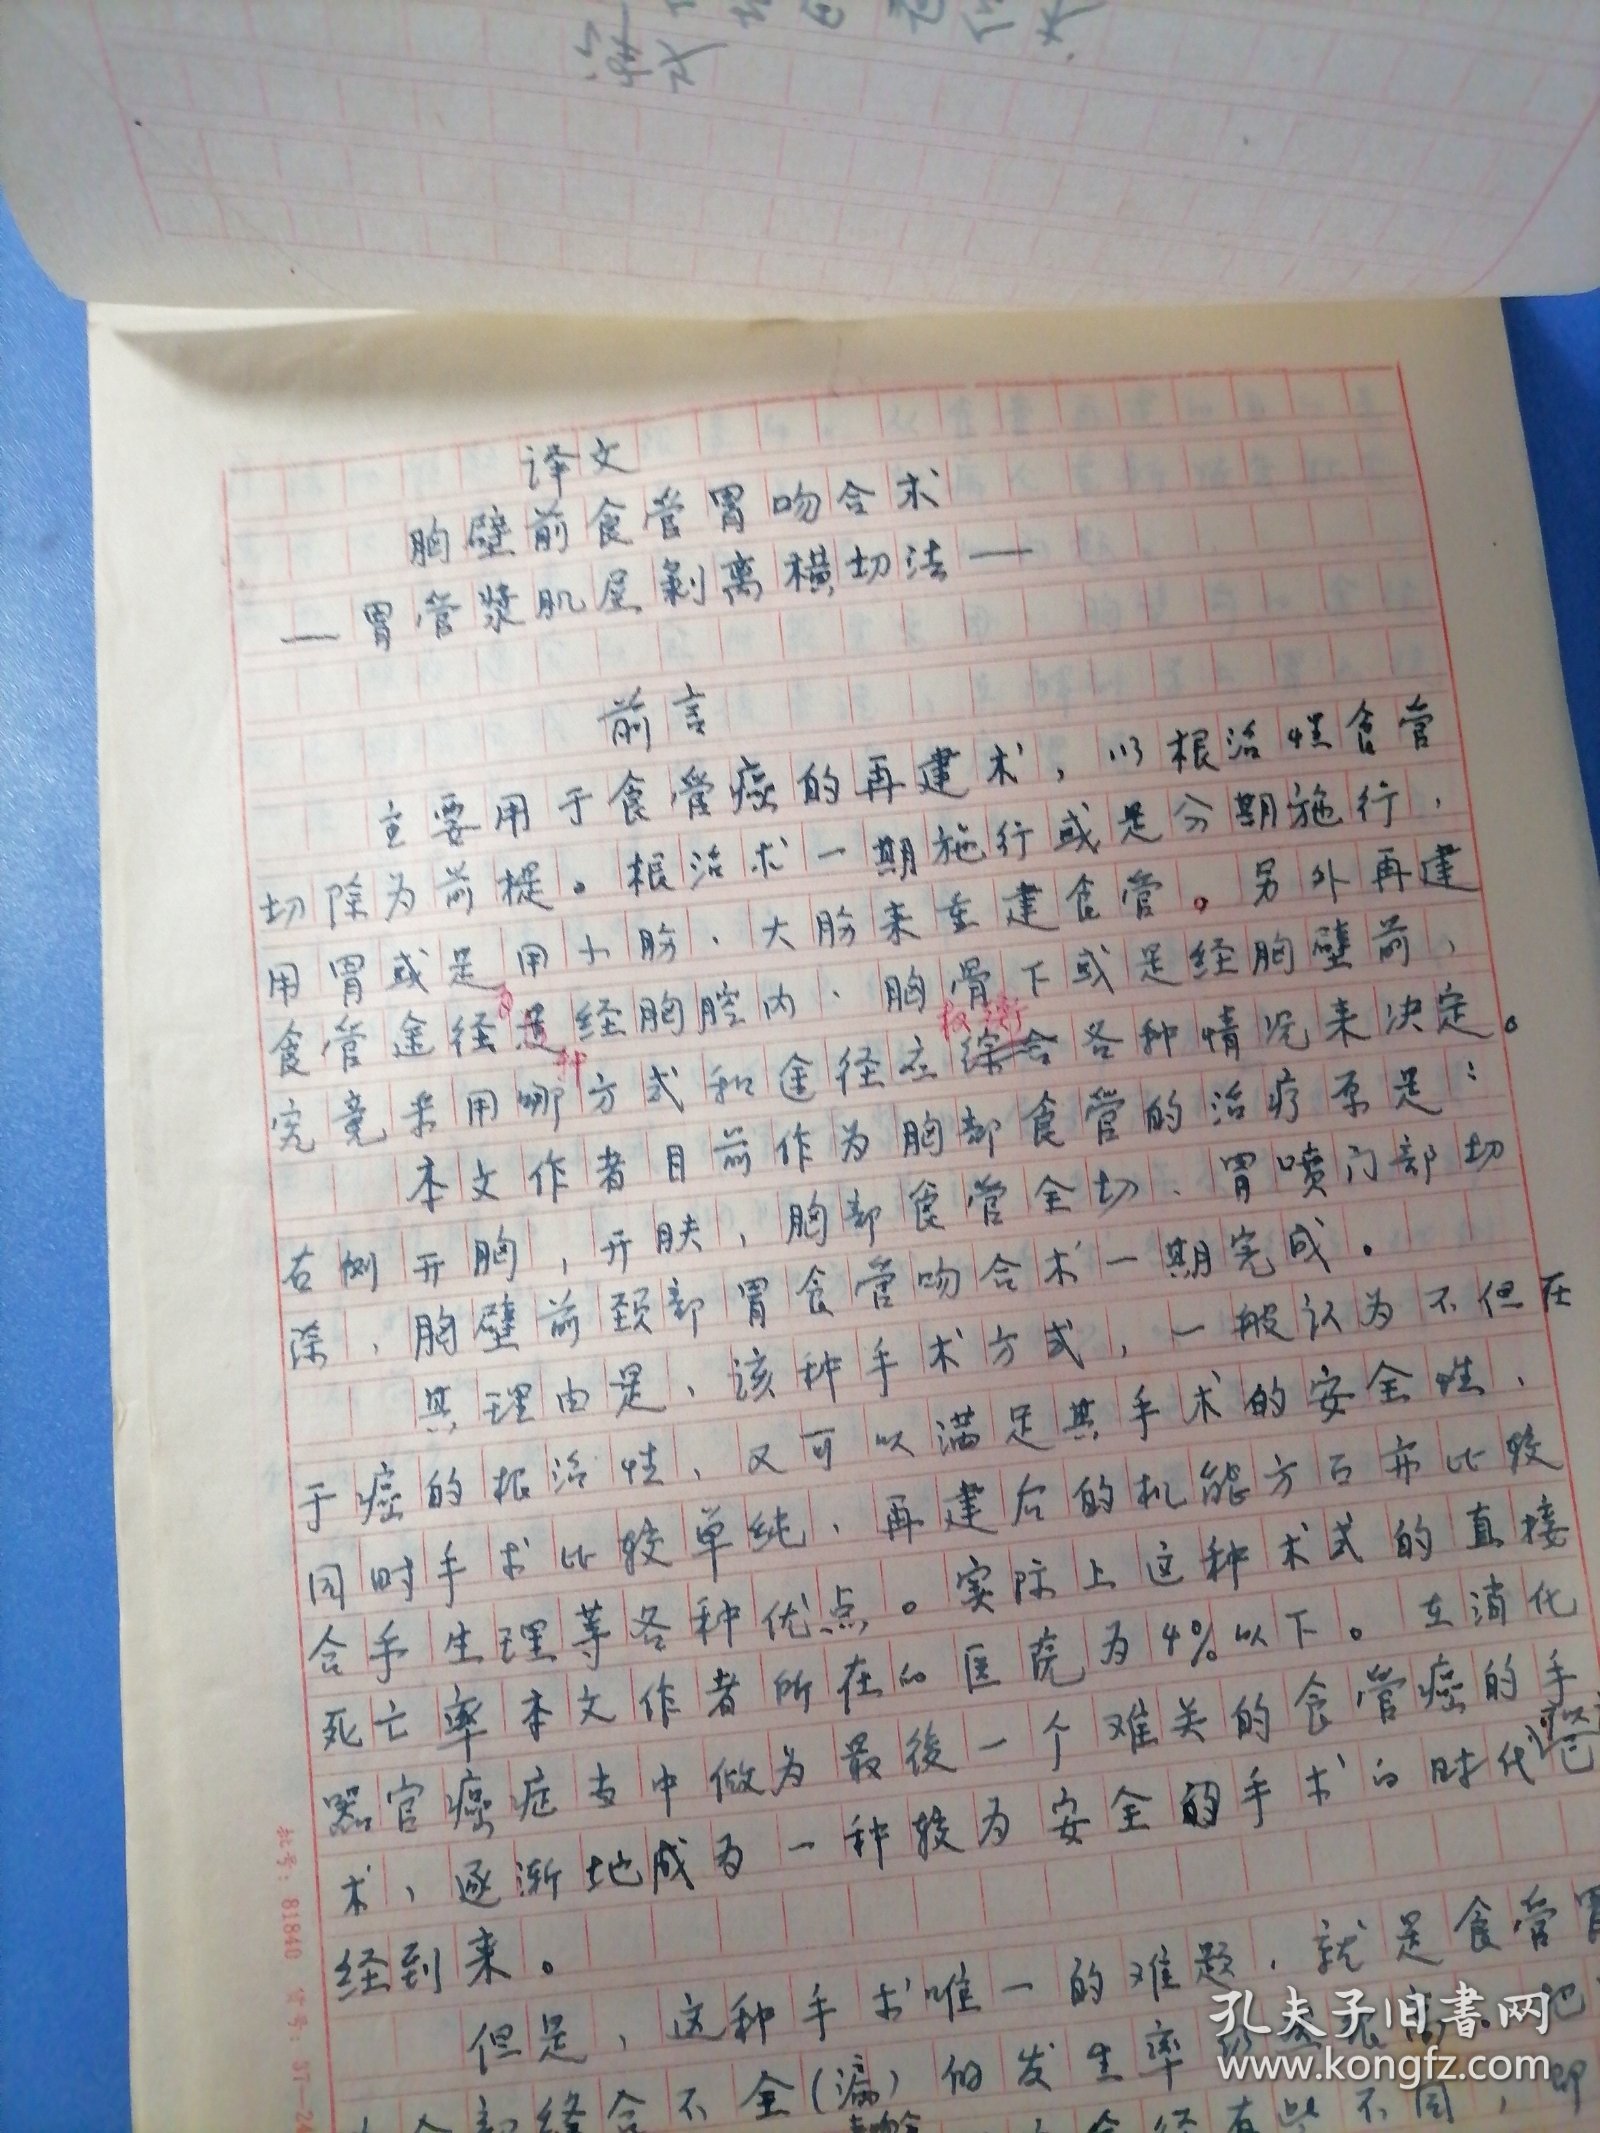 译文
胸壁前食管胃吻合术
—胃管浆肌层剥离横切法—
前言
主要用于食管癌的再建术，以根治性食管
切除为前提。根治术一期施行或是分期施行，
用胃或是用小肠、大肠来重建食管。另外再建
食管途径是经胸腔内、胸骨下或是经胸壁前，
种
究竟采用哪方式和途径应综合各种情况来决定。
本文作者目前作为胸部食管的治疗原是：
右侧开胸，开腹，胸部食管全切、胃喷门部切
除，胸壁前颈部胃食管吻合术一期完成。
其理由是、该种手术方式，一般认为不但在
于癌的根治性，又可以满足其手术的安全性、
同时手术比较单纯、再建后的机能方面亦比较
合乎生理等各种优点。实际上这种术式的直接
死亡率本文作者所在的医院为4%以下。在消化
器官癌症当中做为最後一个难关的食管癌的手
术，逐渐地成为一种较为安全的手术的时代已
经到来。
但是，这种手术唯一的难题，就是食管胃
缝合不全(漏)的发生率
有些不同，即
孔夫子旧書网
www.kongfz.com
81840